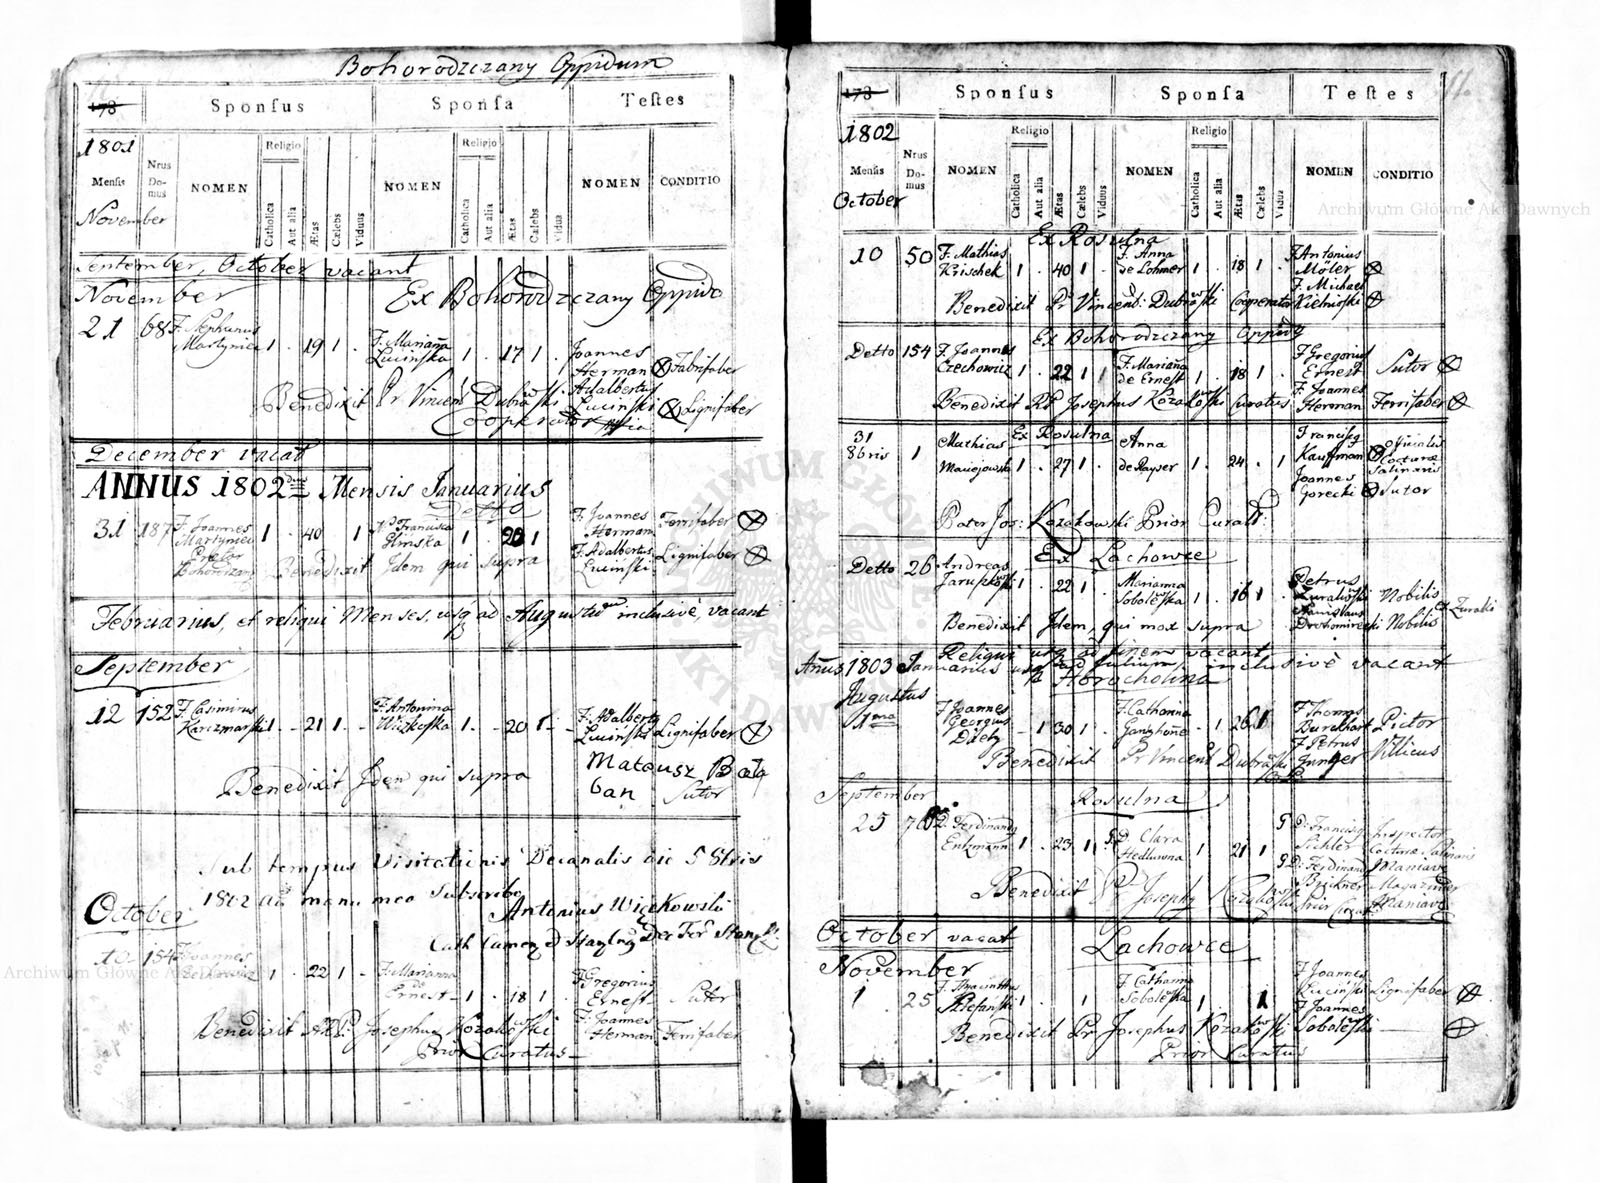 Bohorodzczany Oppidum
173
Sponsus
Sponsa
Testes
1801
Mensis
November
Nrus Do-mus
NOMEN
Religio
Catholica
Aut alia
Ætas
Cælebs
Viduus
NOMEN
Religio
Catholica
Aut alia
Ætas
Cælebs
Vidua
NOMEN
CONDITIO
September, October vacant
November
Ex Bohorodzczany Oppido
21 68 F. Stephanus Martyniec 1 . 19 1 . F. Mariana Lucinska 1 . 17 1 . Joannes Herman Fabrifaber
Adalbertus Lucinski Lignifaber
Benedixit Pr Vincent Dubrawski
Cooperator
December vacat
ANNUS 1802 Mensis Januarius
Detto
31 187 F. Joannes Martyniec 1 . 40 1 Francisca Glinska 1 . 20 1 F. Joannes Herman Ferrifaber
Bohorodzany
Benedixit Idem qui supra F. Adalbertus Lucinski Lignifaber
Februarius, et reliqui Menses, usq ad Augustum inclusivè, vacant
September
12 152 F. Casimirus Karczmarski 1 . 21 1 . F. Antonina 1 . 20 1 F. Adalbertg Lucinski Lignifaber
Benedixit Idem qui supra
Mateusz Bala
ban Sutor
Sub tempus Visitationis Decanalis die 5 8bris
1802 an manu mea subscribo
Antonius Więckowski
October
10 154 F. Joannes Czechowicz 1 . 22 1 . F. Marianna de Ernest 1 . 18 1 . F. Gregorius Ernest Sutor
F. Joannes Herman Ferrifaber
Benedixit R. P. Josephus Kozakowski
Prior Curatus
173
Sponsus
Sponsa
Testes
11.
1802
Mensis
October
Nrus Do-mus
NOMEN
Religio
Catholica
Aut alia
Ætas
Cælebs
Viduus
NOMEN
Religio
Catholica
Aut alia
Ætas
Cælebs
Vidua
NOMEN
CONDITIO
Ex Rosulna
10 50 F. Mathias Krischek 1 . 40 1 . F. Anna de Lohmer 1 . 18 1 . F Antonius Möler
F. Michael Kielnioski
Benedixit Pr Vincent: Dubrawski Cooperator
Ex Bohorodzczany Oppido
Detto 154 F. Joannes Czechowicz 1 . 22 1 F. Mariana de Ernest 1 . 18 1 . F Gregorius Ernest Sutor
F. Joannes Herman Ferrifaber
Benedixit R. P. Josephus Kozakowski Curatus
Ex Rosulna
31 8bris 1 Mathias Maciejowski 1 . 27 1 . Anna de Rayser 1 . 24 . 1 Franciscg Kauffman Officialis Cocturæ Salinaris
Joannes Gorecki Sutor
Pater Jos: Kozakowski Prior Curatt:
Ex Lachowce
Detto 26 Andreas 1 . 22 1 . Marianna Sobolewska 1 . 16 1 . Petrus Zurakowski Nobilis ex Zuraki
Stanislaus Drohomirecki Nobilis
Benedixit Idem, qui mox supra
Reliqui usq ad finem vacant
Anus 1803 Januarius usq ad Julium, inclusivè vacant
Horocholina
Augustus
1ma F Joannes Georgius 1 30 1 . F Catharina . 1 26 1 F Thomas Burckhart Pictor
F Petrus Junger Villicus
Benedixit Pr Vincent Dubrawski
September
Rosulna
25 F. Ferdinandg Entzmann 1 . 23 1 G D. Clara 1 21 1 G D: Franciscg Sichler Inspector Cocturæ Salinaris
G D: Ferdinand Brükner
Benedixit Pr Josephg Kozakowski Prior Curat
October vacat
Lachowce
November
1 25 F. Hyacinthus Stefanski 1 . 1 F Catharina Sobolewska 1 . 1 F Joannes Lucinski Lignifaber
F Joannes Sobolewski
Benedixit Pr Josephus Kozakowski
Prior Curatus
Archiwum Główne Akt Dawnych